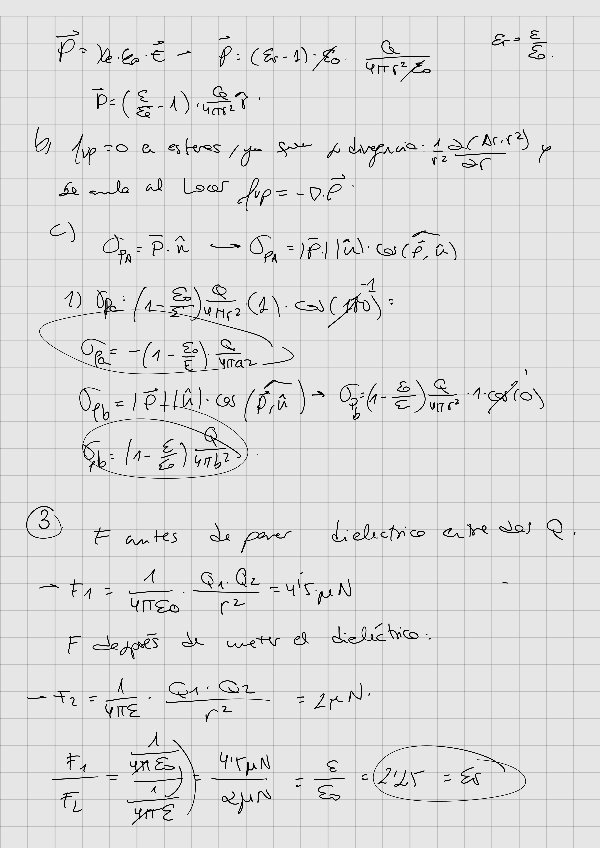 P⃗ = χe·ε0·E⃗ → P⃗ = (εr-1)·ε0 · Q/(4πr²ε0)   εr = ε/ε0.
P⃗ = (ε/ε0 - 1)·Q/(4πr²) r̂.
b) ρvp = 0 en esferas, ya que divergencia · 1/r² ∂(Ar·r²)/∂r y
se anula al hacer ρvp = -∇·P⃗.
c)
σPA = P⃗·n̂ → σPA = |P⃗||n̂|·cos(P⃗,n̂)
1) σPa = (1 - ε0/ε) Q/(4πr²) (1)·cos(180)^-1 =
σPa = -(1 - ε0/ε)·Q/(4πa²)
σPb = |P⃗||n̂|·cos(P⃗,n̂) → σPb = (1 - ε0/ε) Q/(4πr²)·1·cos(0) 1
σPb = (1 - ε/ε0) Q/(4πb²).
3 F antes de poner dieléctrico entre las Q.
→ F1 = 1/(4πε0) · Q1·Q2/r² = 4'5 μN
F después de meter el dieléctrico:
→ F2 = 1/(4πε) · Q1·Q2/r² = 2 μN.
F1/F2 = (1/(4πε0))/(1/(4πε)) = 4'5 μN/2 μN = ε/ε0 = 2'25 = εr